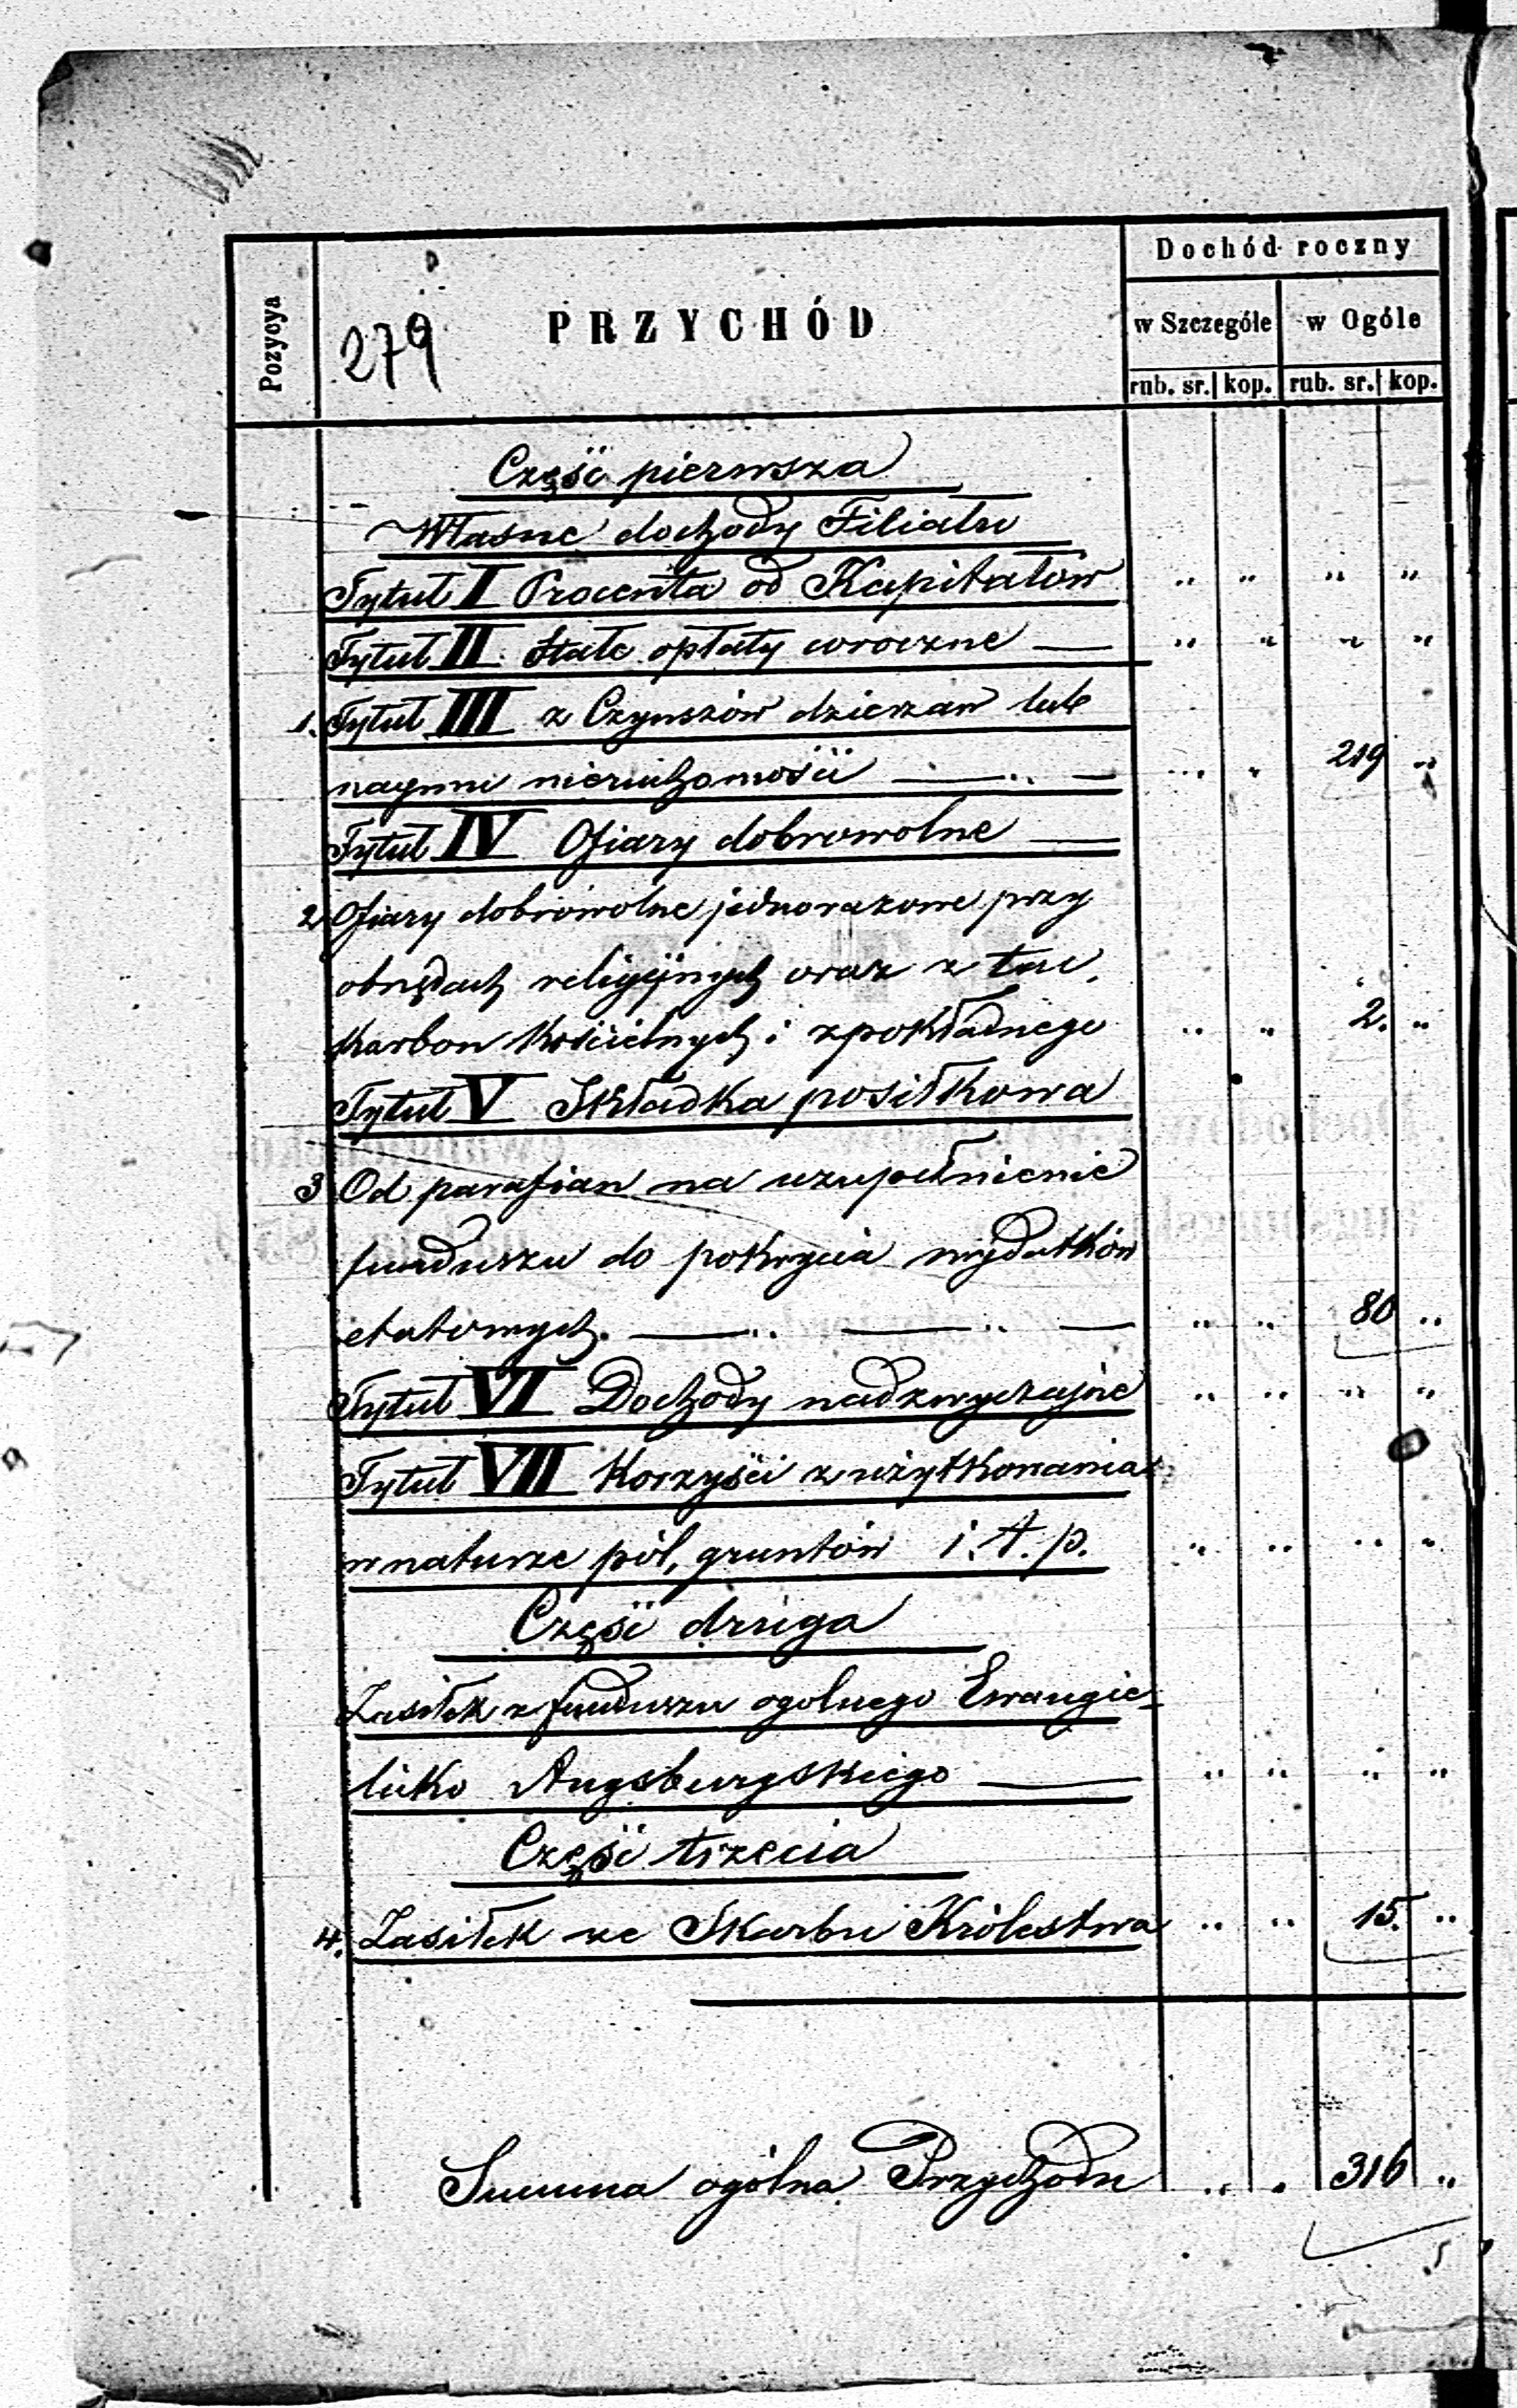 Dochód roczny
Pozycya
279
PRZYCHÓD
w Szczególe w Ogóle
rub. sr. kop. rub. sr. kop.
Część pierwsza
Własne dochody Filiału
Tytuł I Procenta od Kapitałów " " " "
Tytuł II Stałe opłaty coroczne — " " " "
1. Tytuł III z Czynszów dzierzaw lub
najmu nieruchomości — " — " " 219 "
Tytuł IV Ofiary dobrowolne —
2 Ofiary dobrowolne jednorazowe przy
obrzędach religijnych oraz z tac,
Karbon Kościelnych i zpokładnego " " 2. "
Tytuł V Składka posiłkowa
3 Od parafian na uzupełnienie
funduszu do pokrycia wydatków
etatowych. — " — " — " " 80 "
Tytuł VI Dochody nadzwyczajne " " " "
Tytuł VII Korzyści z użytkowania
w naturze pól, gruntów i. t. p. " " " "
Część druga
Zasiłek z funduszu ogolnego Ewangie-
licko Augsburgskiego — " " " "
Część trzecia
4. Zasiłek ze Skarbu Królestwa " " 15. "
Summa ogólna Przychodu " " 316 "